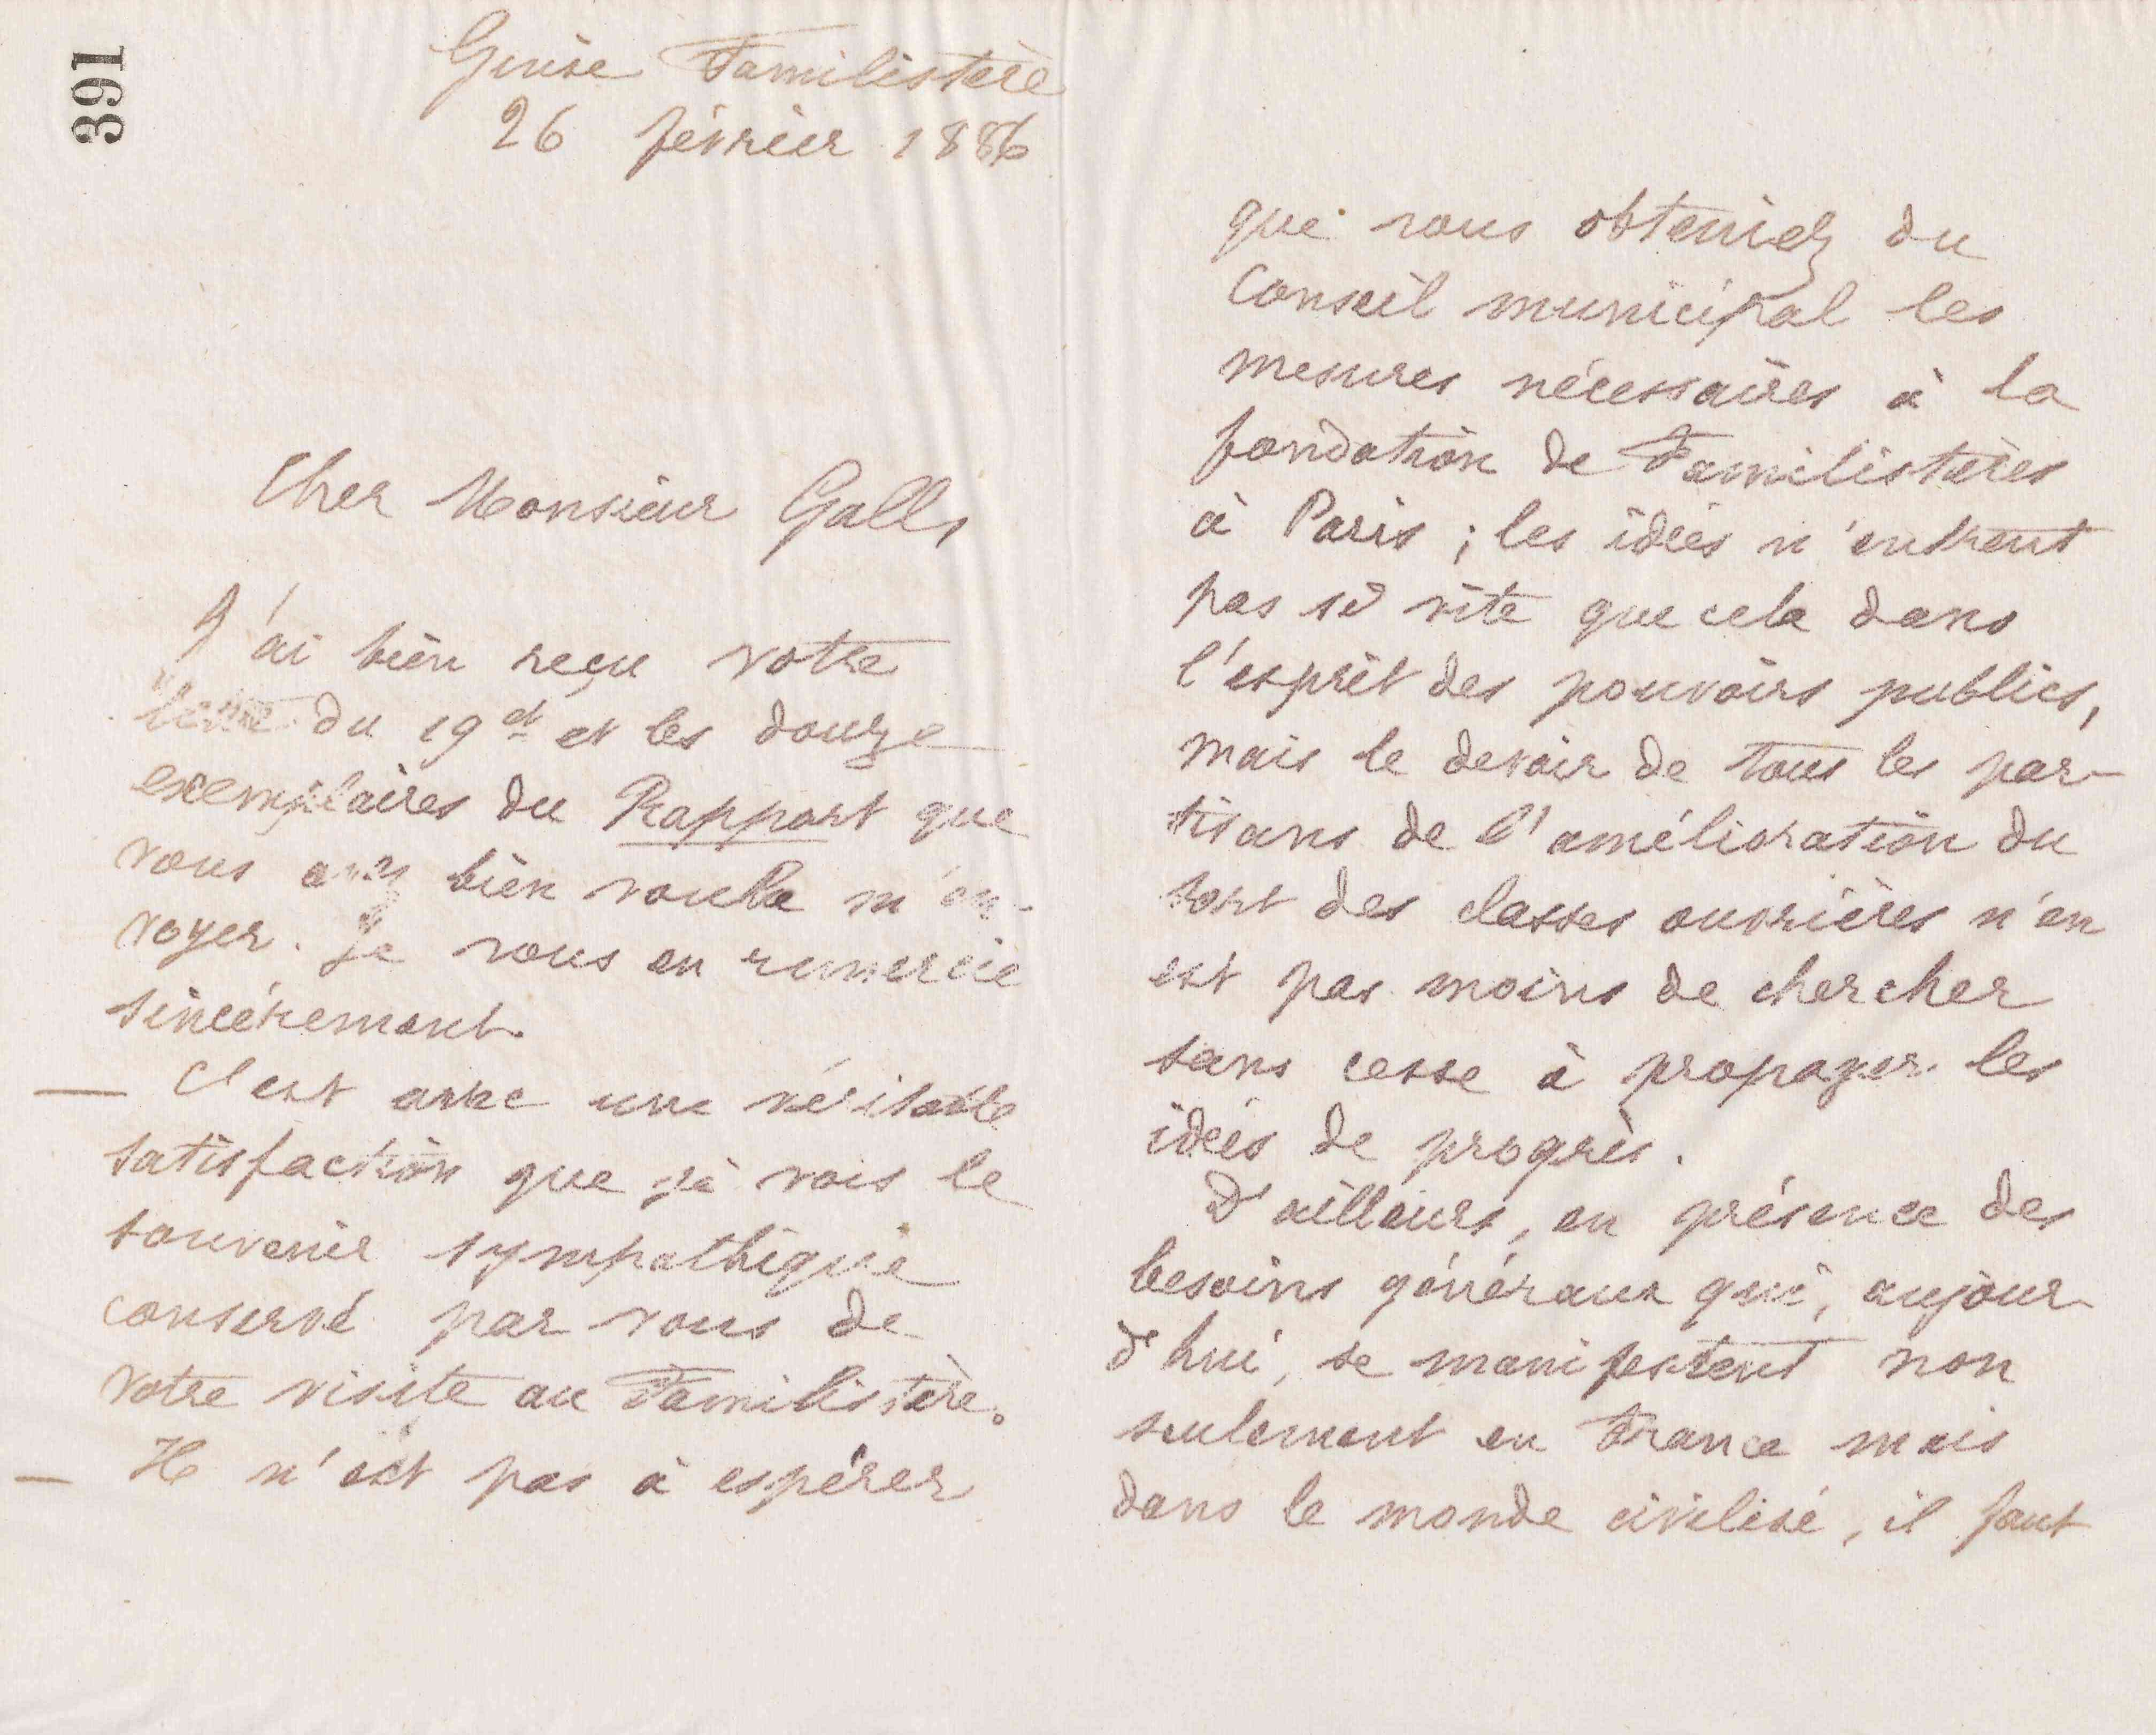 391
Guise Familistère
26 février 1886
Cher Monsieur Galli,
J'ai bien reçu votre
lettre du 19 ct et les douze
exemplaires du Rapport que
vous avez bien voulu m'en-
voyer. Je vous en remercie
sincèrement.
— C'est avec une véritable
satisfaction que je vois le
souvenir sympathique
conservé par vous de
votre visite au Familistère.
— Il n'est pas à espérer
que vous obteniez du
Conseil municipal les
mesures nécessaires à la
fondation de Familistères
à Paris ; les idées n'entrent
pas si vite que cela dans
l'esprit des pouvoirs publics,
mais le devoir de tous les par-
tisans de l'amélioration du
sort des classes ouvrières n'en
est pas moins de chercher
sans cesse à propager les
idées de progrès.
D'ailleurs, en présence des
besoins généraux qui, aujour-
d'hui, se manifestent non
seulement en France mais
dans le monde civilisé, il faut